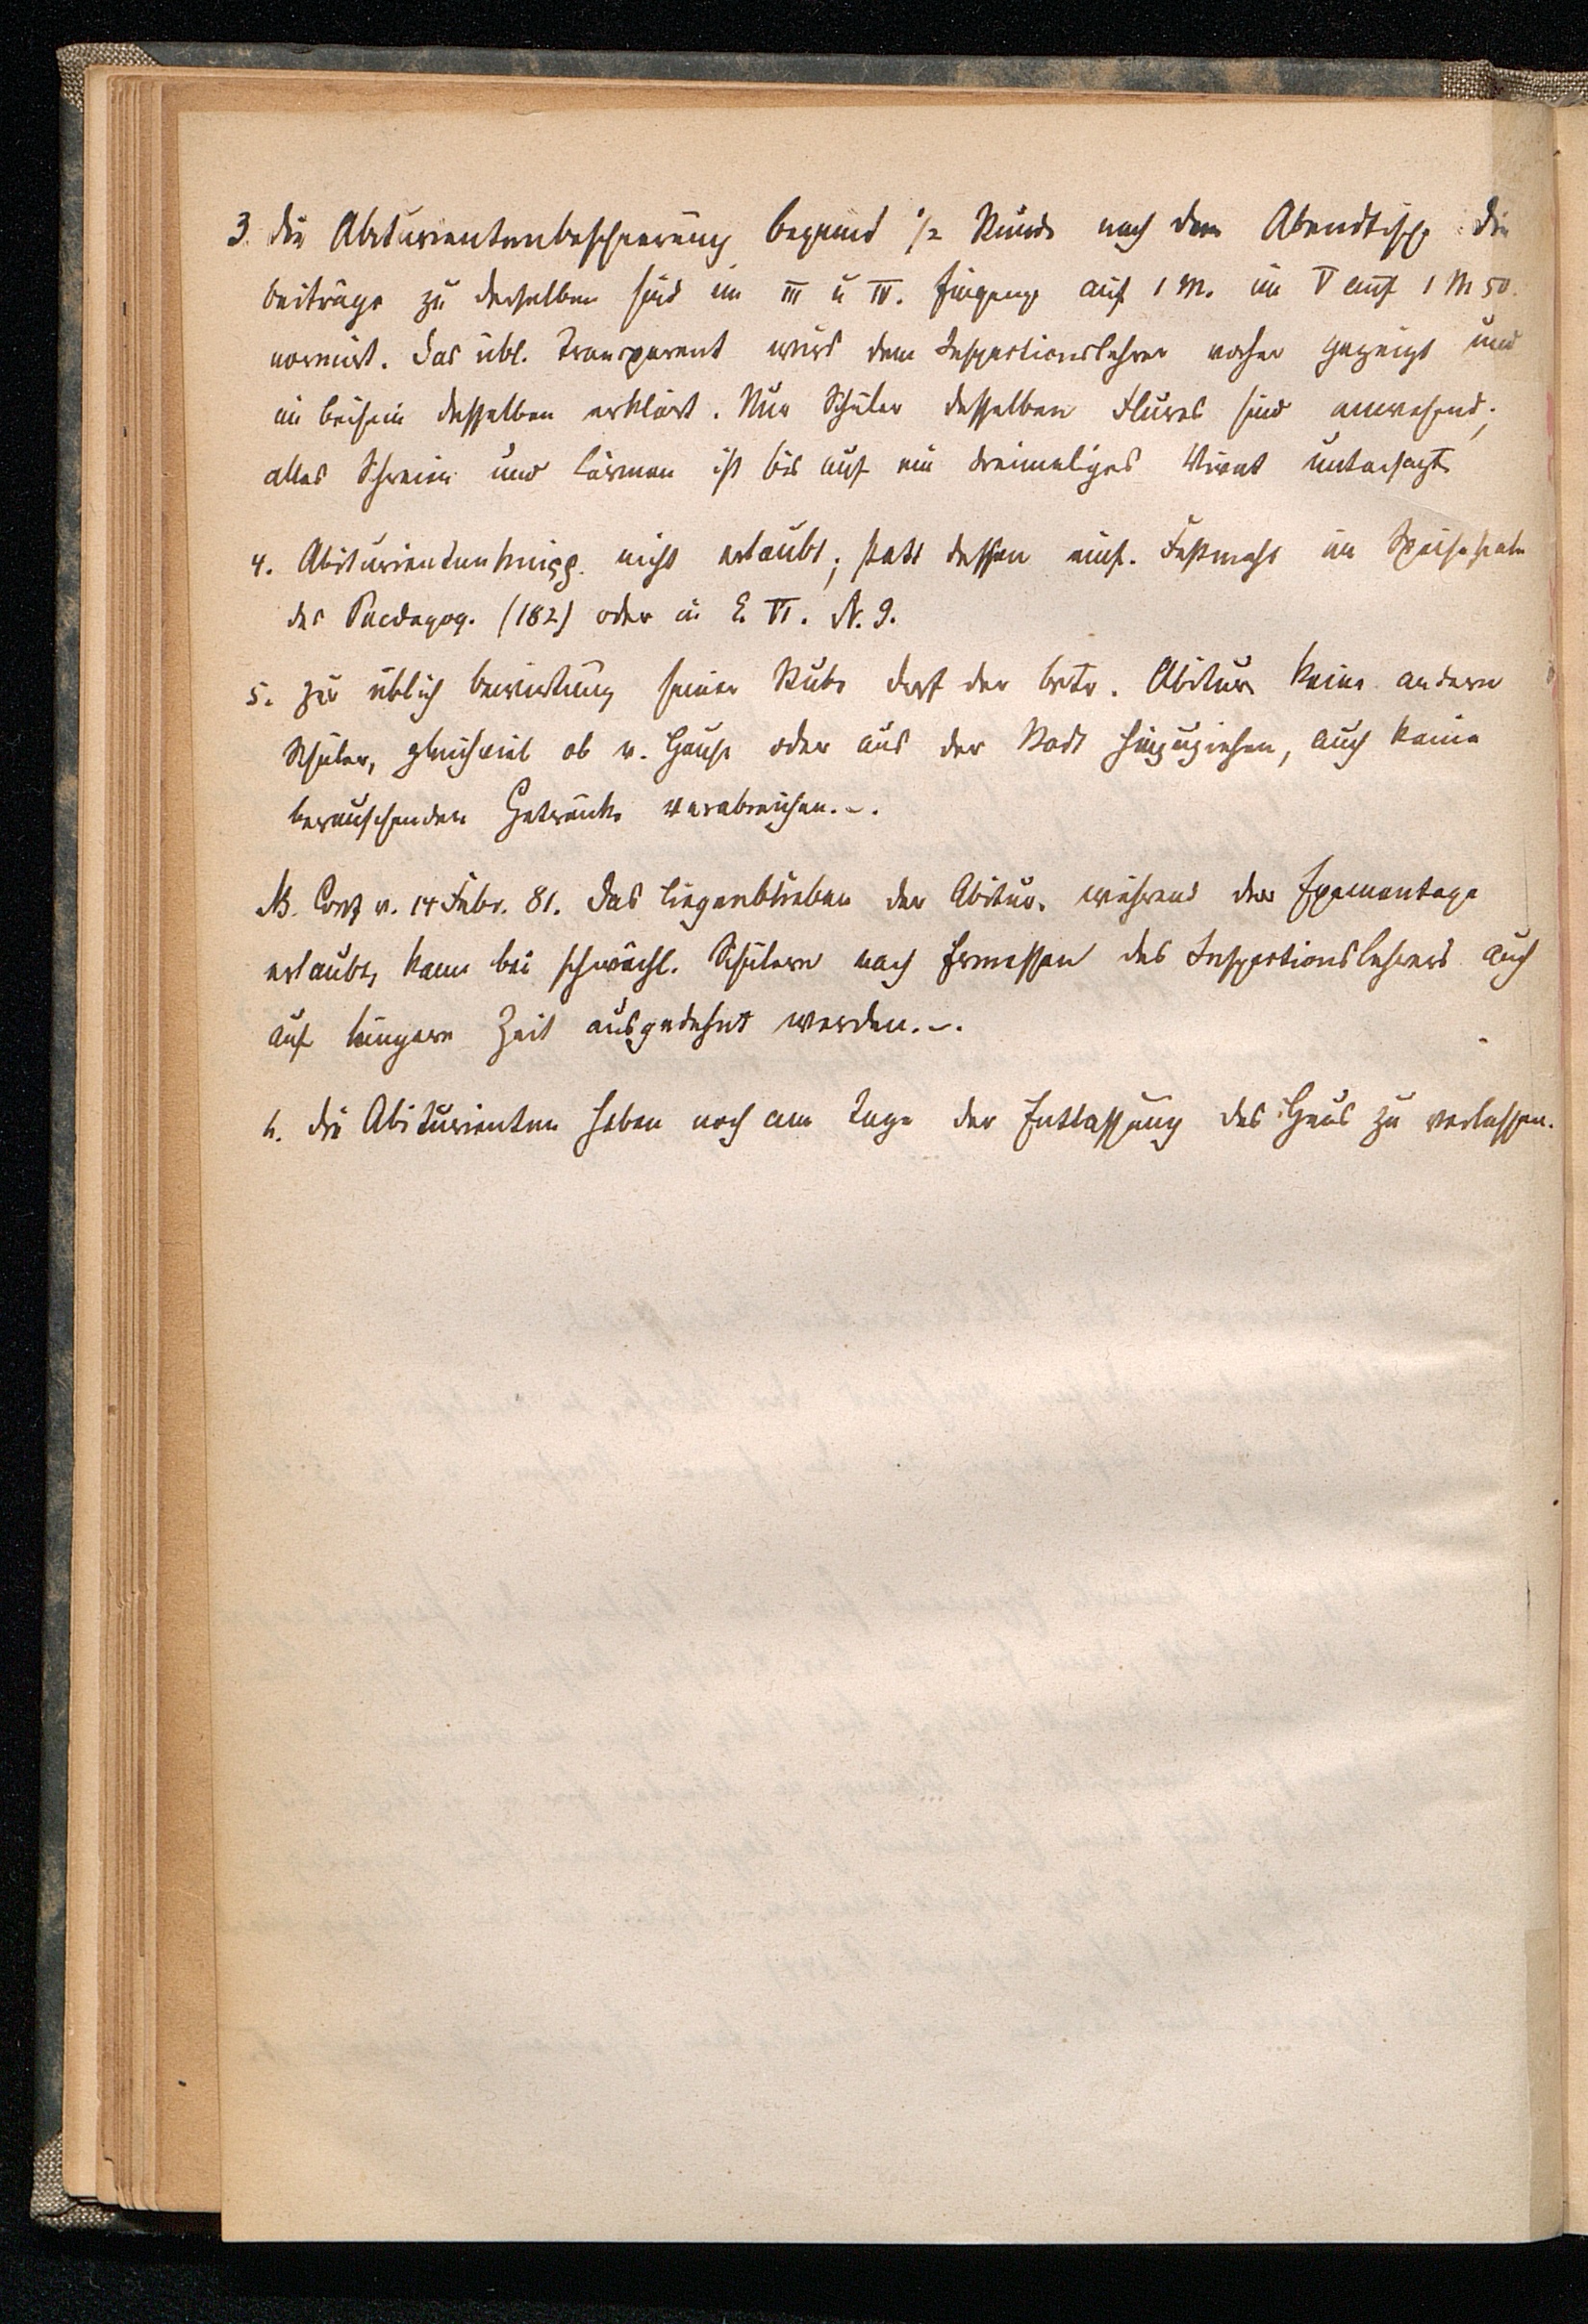 3. die Abiturientenbescheerung beginnt 1/2 Stunde nach dem Abendtisch die
beiträge zu derselben sind im III u IV. Eingang auf 1 M. im V auf 1 M 50.
normirt. das übl. Transparent wird dem Inspectionslehrer vorher gezeigt und
in beisein desselben erklärt. Nur Schüler desselben Flures sind anwesend;
alles Schreien und lärmen ist bis auf ein dreimaliges Vivat untersagt.
4. Abiturientenkneipe nicht erlaubt; statt dessen einf. Festmahl im Speisesaale
des Paedagog. (182) oder in E. VI. N. 9.
5. zur üblich bewirtung seiner Stube darf der betr. Abitur. keine andern
Schüler, gleichviel ob v. Hause oder aus der Stadt hinzuziehen, auch keine
berauschenden Getränke verabreichen. –.
NB. Conf v. 14 Febr. 81. das liegenbleiben der Abitur. während der Examentage
erlaubt, kann bei schwächl. Schülern nach Ermessen des Inspectionslehrers auch
auf längere Zeit ausgedehnt werden. –.
6. die Abiturienten haben noch am Tage der Entlassung das Haus zu verlassen.